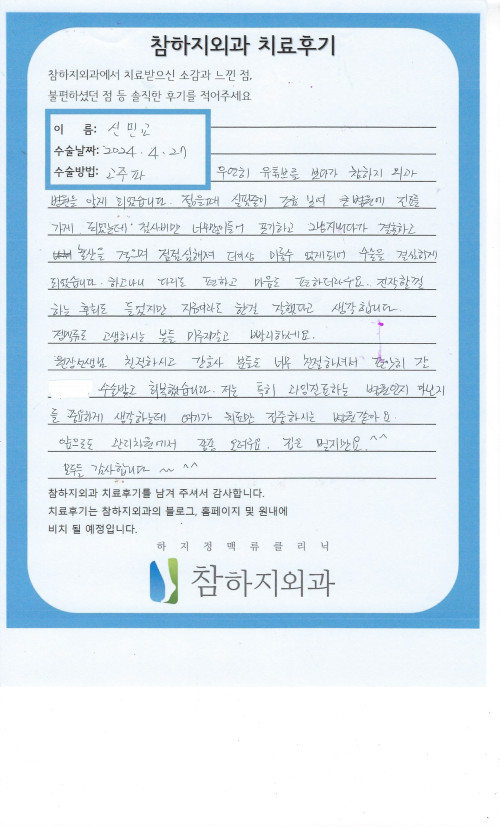 참하지외과 치료후기
참하지외과에서 치료받으신 소감과 느낀 점,
불편하셨던 점 등 솔직한 후기를 적어주세요
이 름: 신민교
수술날짜: 2024. 4. 27
수술방법: 고주파
우연히 유튜브를 보다가 참하지 외과
병원을 알게 되었습니다. 젊을때 실핏줄이 조금 보여 큰병원에 진료
가게 되었는데 검사비만 너무많이들어 포기하고 그냥지내다가 결혼하고
출산을 겪으며 점점심해져 더이상 미룰수 없게되어 수술을 결심하게
되었습니다. 하고나니 다리도 편하고 마음도 편하더라구요. 진작할껄
하는 후회도 들었지만 지금이라도 한걸 잘했다고 생각합니다.
정맥류로 고생하시는 분들 미루지말고 빨리하세요.
원장선생님 친절하시고 간호사 분들도 너무 친절하셔서 편안히
수술받고 회복했습니다. 저는 특히 과잉진료하는 병원인지 아닌지
를 중요하게 생각하는데 여기가 치료만 집중하시는 병원같아요.
앞으로도 관리차원에서 종종 오려구요. 집은 멀지만요.^^
모두들 감사합니다 ~ ^^
참하지외과 치료후기를 남겨 주셔서 감사합니다.
치료후기는 참하지외과의 블로그, 홈페이지 및 원내에
비치 될 예정입니다.
하지정맥류클리닉
참하지외과